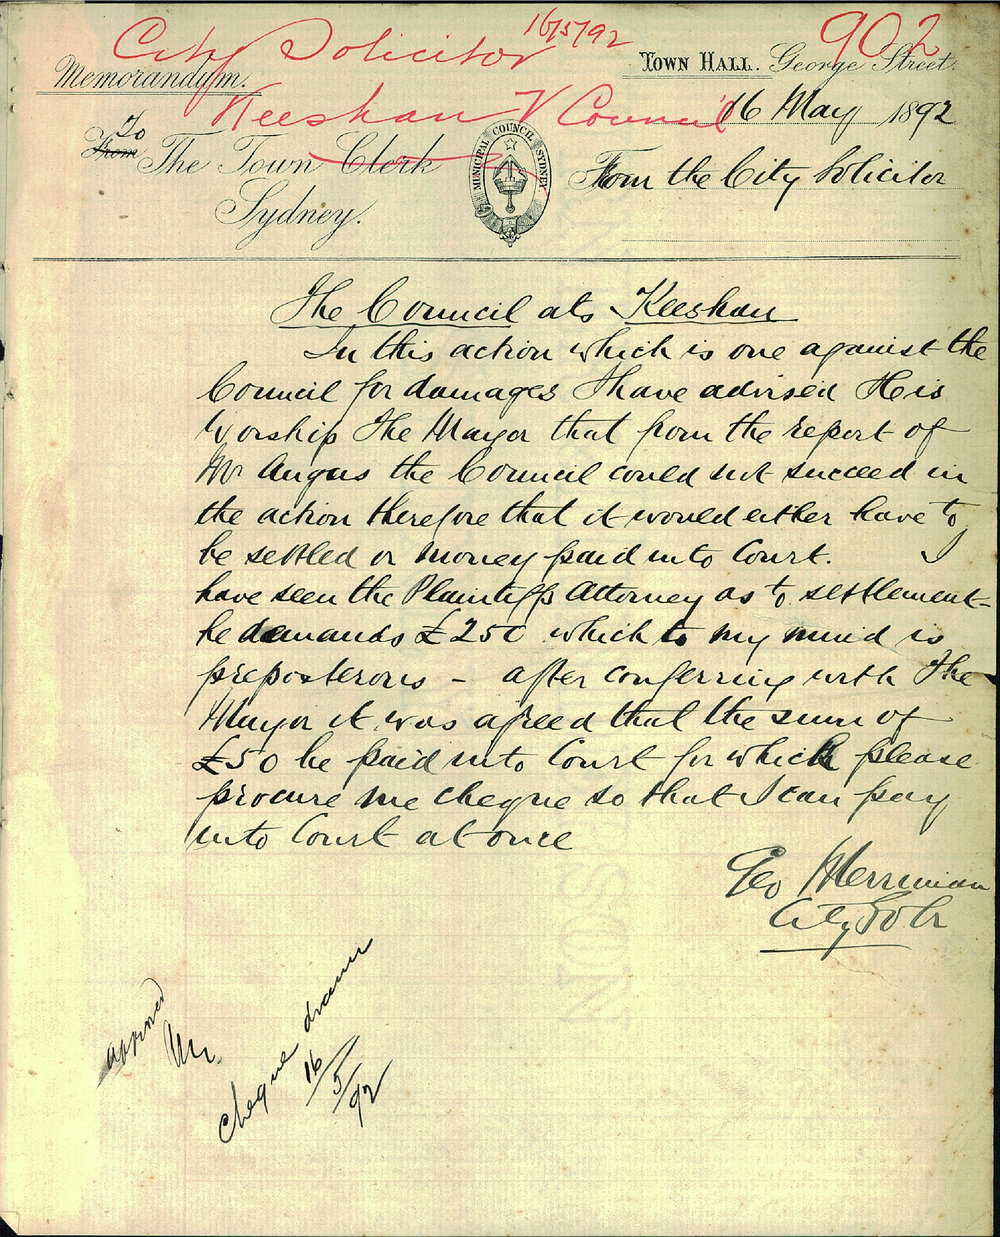 City Solicitor 16/5/92 902
Memorandum.
TOWN HALL. George Street.
Keeshan V Council
16 May 1892
To
From The Town Clerk
Sydney.
MUNICIPAL COUNCIL SYDNEY
From the City Solicitor
The Council ats Keeshan
In this action which is one against the
Council for damages I have advised His
Worship the Mayor that from the report of
Mr Angus the Council could not succeed in
the action therefore that it would either have to
be settled or money paid into Court. I
have seen the Plaintiffs Attorney as to settlement-
he demands £250 which to my mind is
preposterous - after conferring with the
Mayor it was agreed that the sum of
£50 be paid into Court for which please
procure me cheque so that I can pay
into Court at once
Geo Merriman
City Solr
approved
cheque drawn
16/5/92